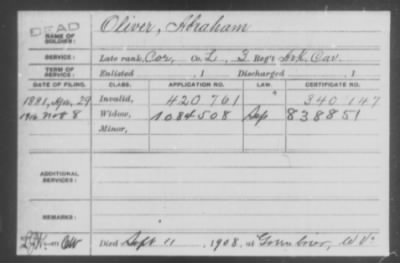 DEAD
NAME OF SOLDIER: Oliver, Abraham
SERVICE: Late rank, Cor, Co. L, 3 Reg't Ark. Cav.
TERM OF SERVICE: Enlisted , 1 Discharged , 1
DATE OF FILING. CLASS. APPLICATION NO. LAW. CERTIFICATE NO.
1881, Apr. 29 Invalid, 420761 340147
Nov 8 Widow, 508 838851
Minor,
ADDITIONAL SERVICES:
REMARKS:
Died Sept 11 1908, at